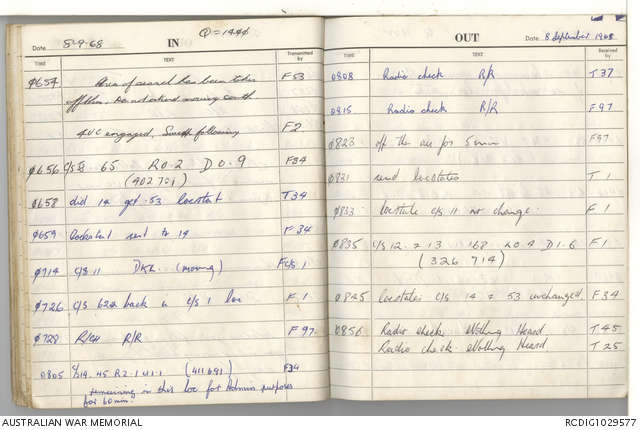 Date 8-9-68 IN Q = 1440
TIME TEXT Transmitted by
0654 Area of search has been taken F53
off them. Do not extend moving south
4VC engaged. Sweep following F2
0656 C/S 65 R0.2 D0.9 F34
(402701)
0658 did 14 get 53 locstat T34
0659 Lockstat sent to 14 F34
0714 C/S 11 (moving) 1
0726 C/S 62A back in C/S 1 loc F1
0728 R/CH R/R F97
0805 45 R2.1 U1.1 (411691) F34
remaining in this loc for Admin purposes
for 60 min.
OUT Date 8 September 1968
TIME TEXT Received by
0808 Radio check R/R T37
0815 Radio check R/R F97
0823 off the air for 5 min F97
0831 send locstates T1
0833 locstate C/S 11 no change. F1
0835 C/S 12 & 13 168 R0.4 D1.6 F1
(326 714)
0845 locstates C/S 14 & 53 unchanged F34
0856 Radio check Nothing Heard T45
Radio check Nothing Heard T25
AUSTRALIAN WAR MEMORIAL RCDIG1029577